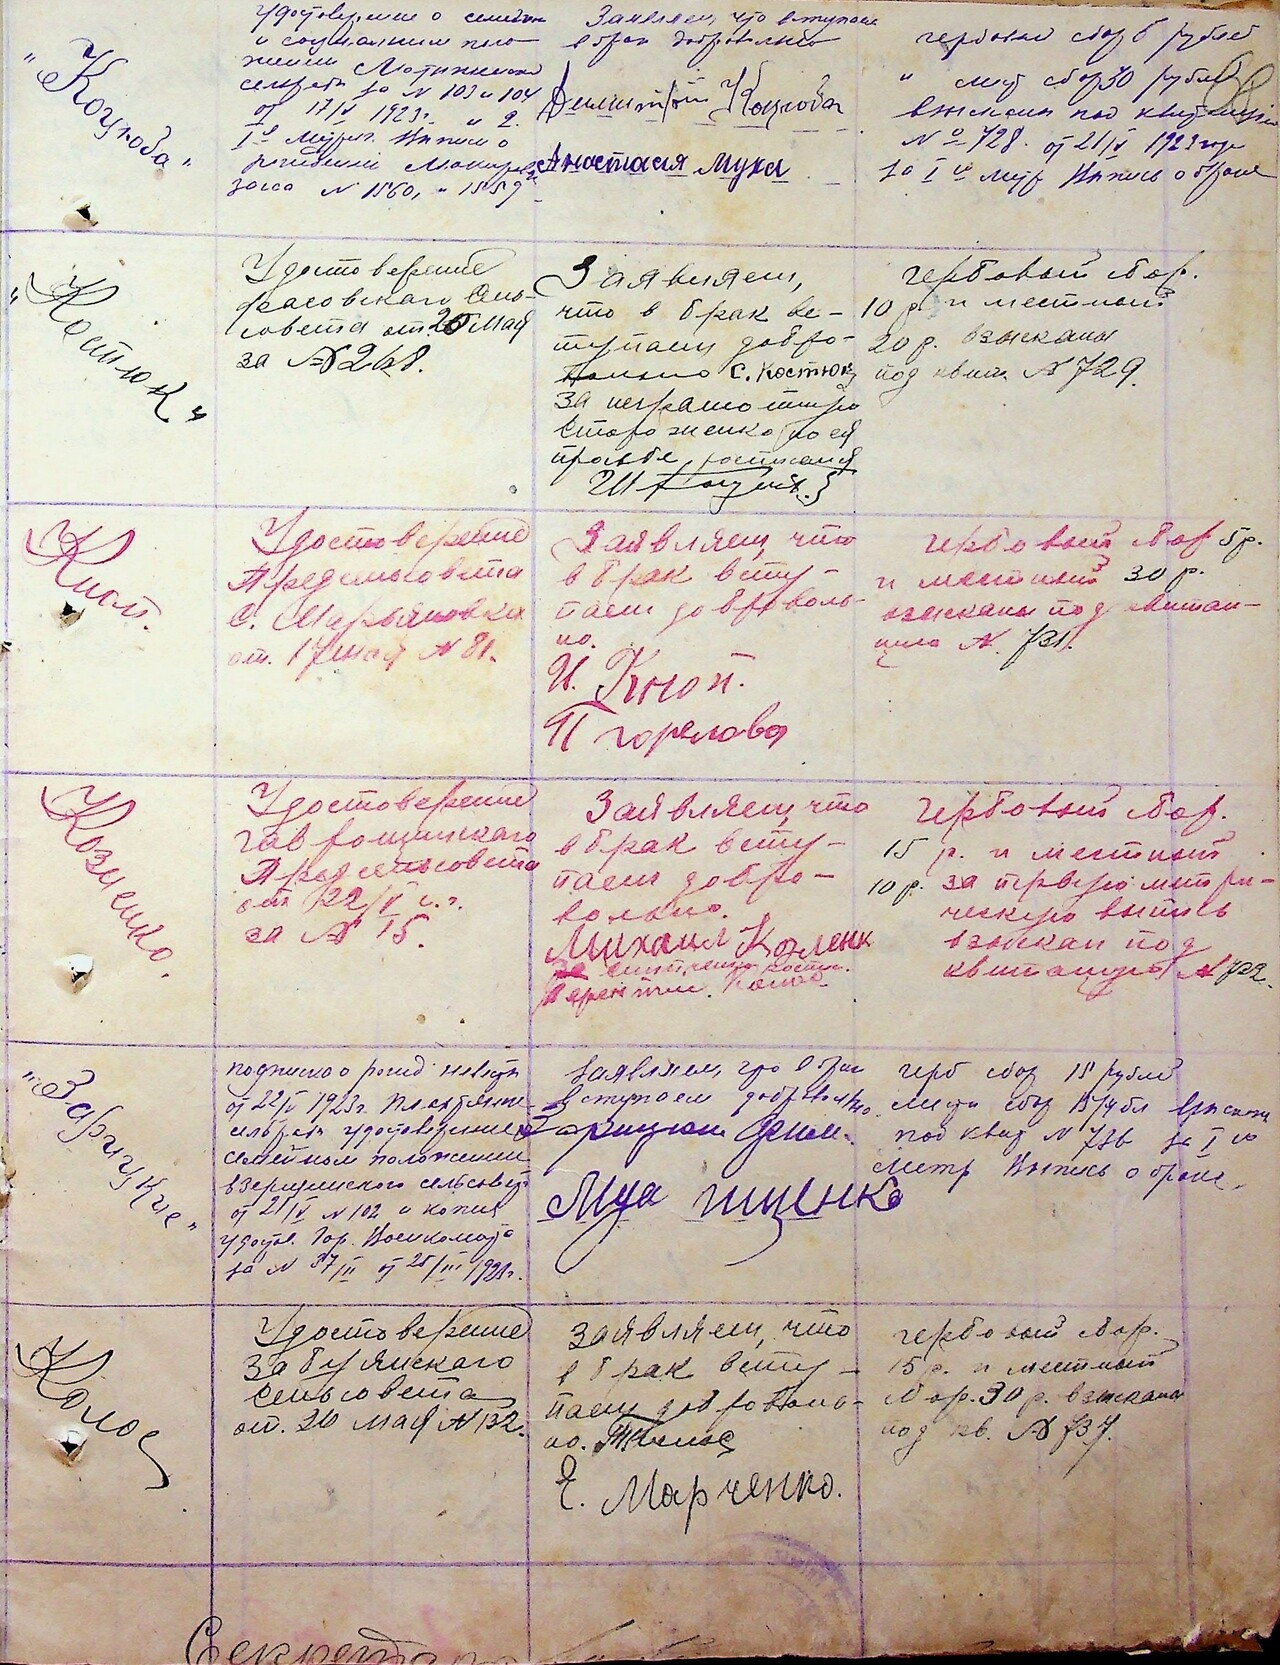 "Коцюба"
удостоверение о семейном
и социальном поло-
жении
сельсовета за N 103 и 104
от 17/V 1923г. и 2.
за N 1560, и 1559
Заявляем что вступаем
в брак добровольно
Дмитрий Коцюба
Анастасия Муха
гербовый сбор 6 рублей
" мест сбор 30 рублей
взыскан под квитанцию
Nо 728. от 21/V 1923 года
за I ю метр Выпись о браке
"Костюк"
Удостоверение
фасовского Сель-
совета от 20 Мая
за N 248.
Заявляем,
что в брак вс-
тупаем добро-
вольно С. Костюк
за неграмотную
Стороженко по ея
просьбе росписался
гербовый сбор.
10 р. и местный
20 р. взысканы
под квит. N 729.
Кноп.
Удостоверение
Предсельсовета
с. Марьяновки
от. 17 мая N 81.
Заявляем, что
в брак всту-
паем доброволь-
но.
И. Кноп.
П Горелова
гербовый сбор 5р.
и местный 30 р.
взысканы под квитан-
цию N. 731.
Козленко.
Удостоверение
Гавронщинского
Предсельсовета
от 22/V с. г.
за N 15.
Заявляем, что
в брак всту-
паем добро-
вольно.
Михаил Козленк
гербовый сбор.
15 р. и местный
10 р. за первую метри-
ческую выпись
взыскан под
квитанцию N 732.
подписка о рожд невесты
от 22/V 1923г.
сельсовета удостоверение о
семейном положении
сельсовета
от 21/V N 102 и копия
удостов. Гор. Военкомата
Заявляем что в брак
вступаем добровольно.
герб сбор 15 рублей
мест сбор 15 рубл взыскан
под квит N 736 за I ю
метр Выпись о браке.
Колос
Удостоверение
Забуянского
Сельсовета
от. 20 мая N 132.
Заявляем, что
в брак всту-
паем доброволь-
но. Колос
Е. Марченко.
гербовый сбор.
15 р. и местный
сбор. 30 р. взысканы
под кв. N 737.
Секретарь